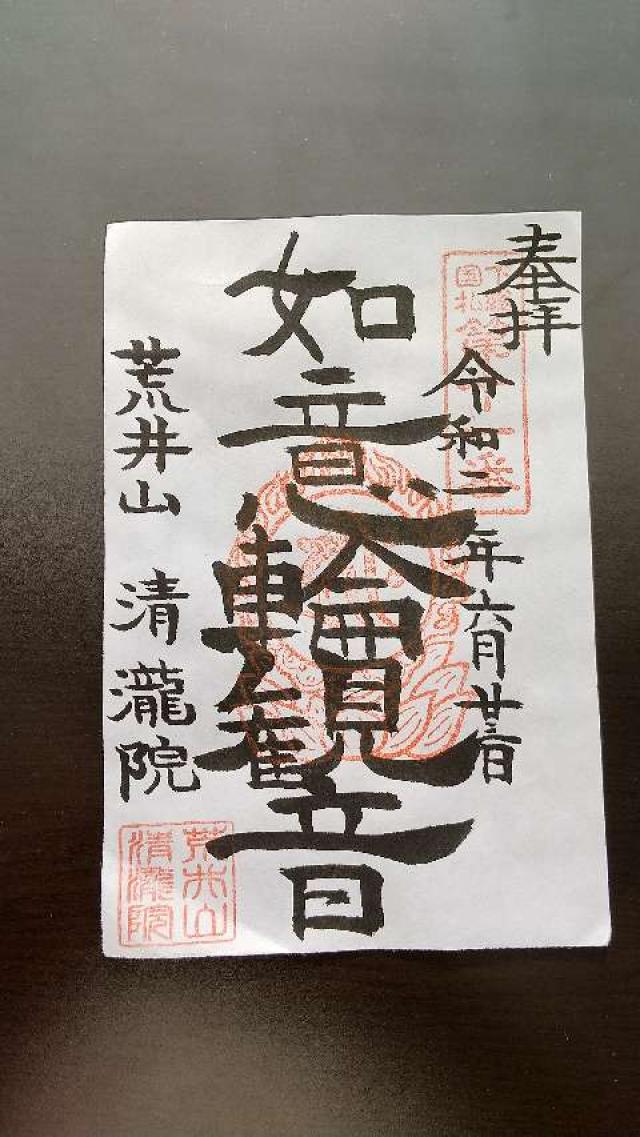 奉拝
令和二年六月廿三日
如意輪観音
荒井山 清瀧院
荒井山
清瀧院